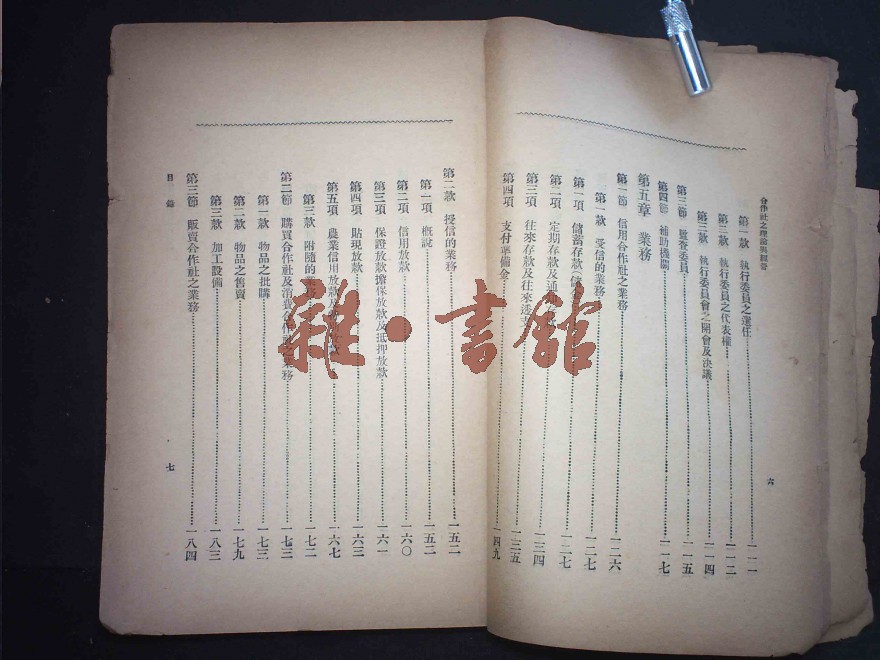 合作社之理論與經營
第一款 執行委員之選任 一一一
第二款 執行委員之代表權 一一二
第三款 執行委員會之開會及決議 一一四
第三節 監查委員 一一五
第四節 補助機關 一一七
第五章 業務
第一節 信用合作社之業務 一二六
第一款 受信的業務 一二七
第一項 儲蓄存款 一二七
第二項 定期存款及通知 一三四
第三項 往來存款及往來透支 一三五
第四項 支付準備金 一四九
六
第二款 授信的業務 一五二
第一項 概說 一五二
第二項 信用放款 一六〇
第三項 保證放款擔保放款及抵押放款 一六一
第四項 貼現放款 一六三
第五項 農業信用放款及 一六七
第三款 附隨的業務 一七二
第二節 購買合作社及消費合作社之業務 一七三
第一款 物品之批購 一七三
第二款 物品之售賣 一七九
第三款 加工設備 一八三
第三節 販賣合作社之業務 一八四
目錄
七
雜·書館